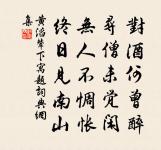 對酒何曾醉
尋僧未覺閑
無人不惆悵
終日見南山
黃滔輦下寓題詞典網
集